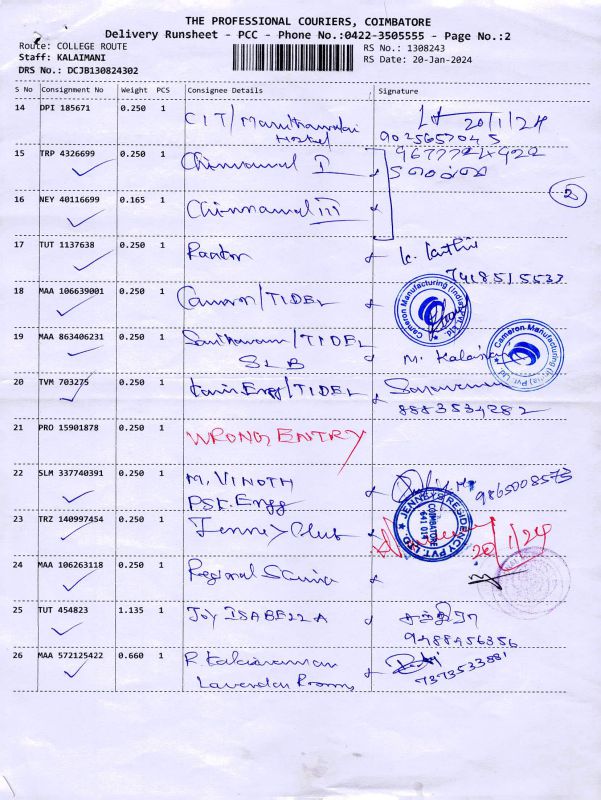 THE PROFESSIONAL COURIERS, COIMBATORE
Delivery Runsheet - PCC - Phone No.:0422-3505555 - Page No.:2
Route: COLLEGE ROUTE
RS No.: 1308243
Staff: KALAIMANI
RS Date: 20-Jan-2024
DRS No.: DCJB130824302
S No Consignment No Weight PCS Consignee Details Signature
14 DPI 185671 0.250 1 CIT/
Hostel 20/1/24
15 TRP 4326699 0.250 1 Chinnamal I
16 NEY 40116699 0.165 1 Chinnamal III
2
17 TUT 1137638 0.250 1
7418515533
18 MAA 106639001 0.250 1 Cameron/TIDEL
Cameron Manufacturing (India) Pvt. Ltd.
19 MAA 863406231 0.250 1 /TIDEL
SLB M. Kalai
Cameron Manufacturing (India) Pvt. Ltd.
20 TVM 703275 0.250 1 Engg/TIDEL
8883534282
21 PRO 15901878 0.250 1 WRONG ENTRY
22 SLM 337740391 0.250 1 M. VINOTH
PSK. Engg 9865008573
23 TRZ 140997454 0.250 1 Jenney Club
JENNEYS RESIDENCY PVT. LTD
COIMBATORE
641 014
20/1/24
24 MAA 106263118 0.250 1 Regional
25 TUT 454823 1.135 1 JOY ISABELLA சந்திரா
9488456356
26 MAA 572125422 0.660 1 R. Kalaiaraman
Lavender Rooms 7373533881